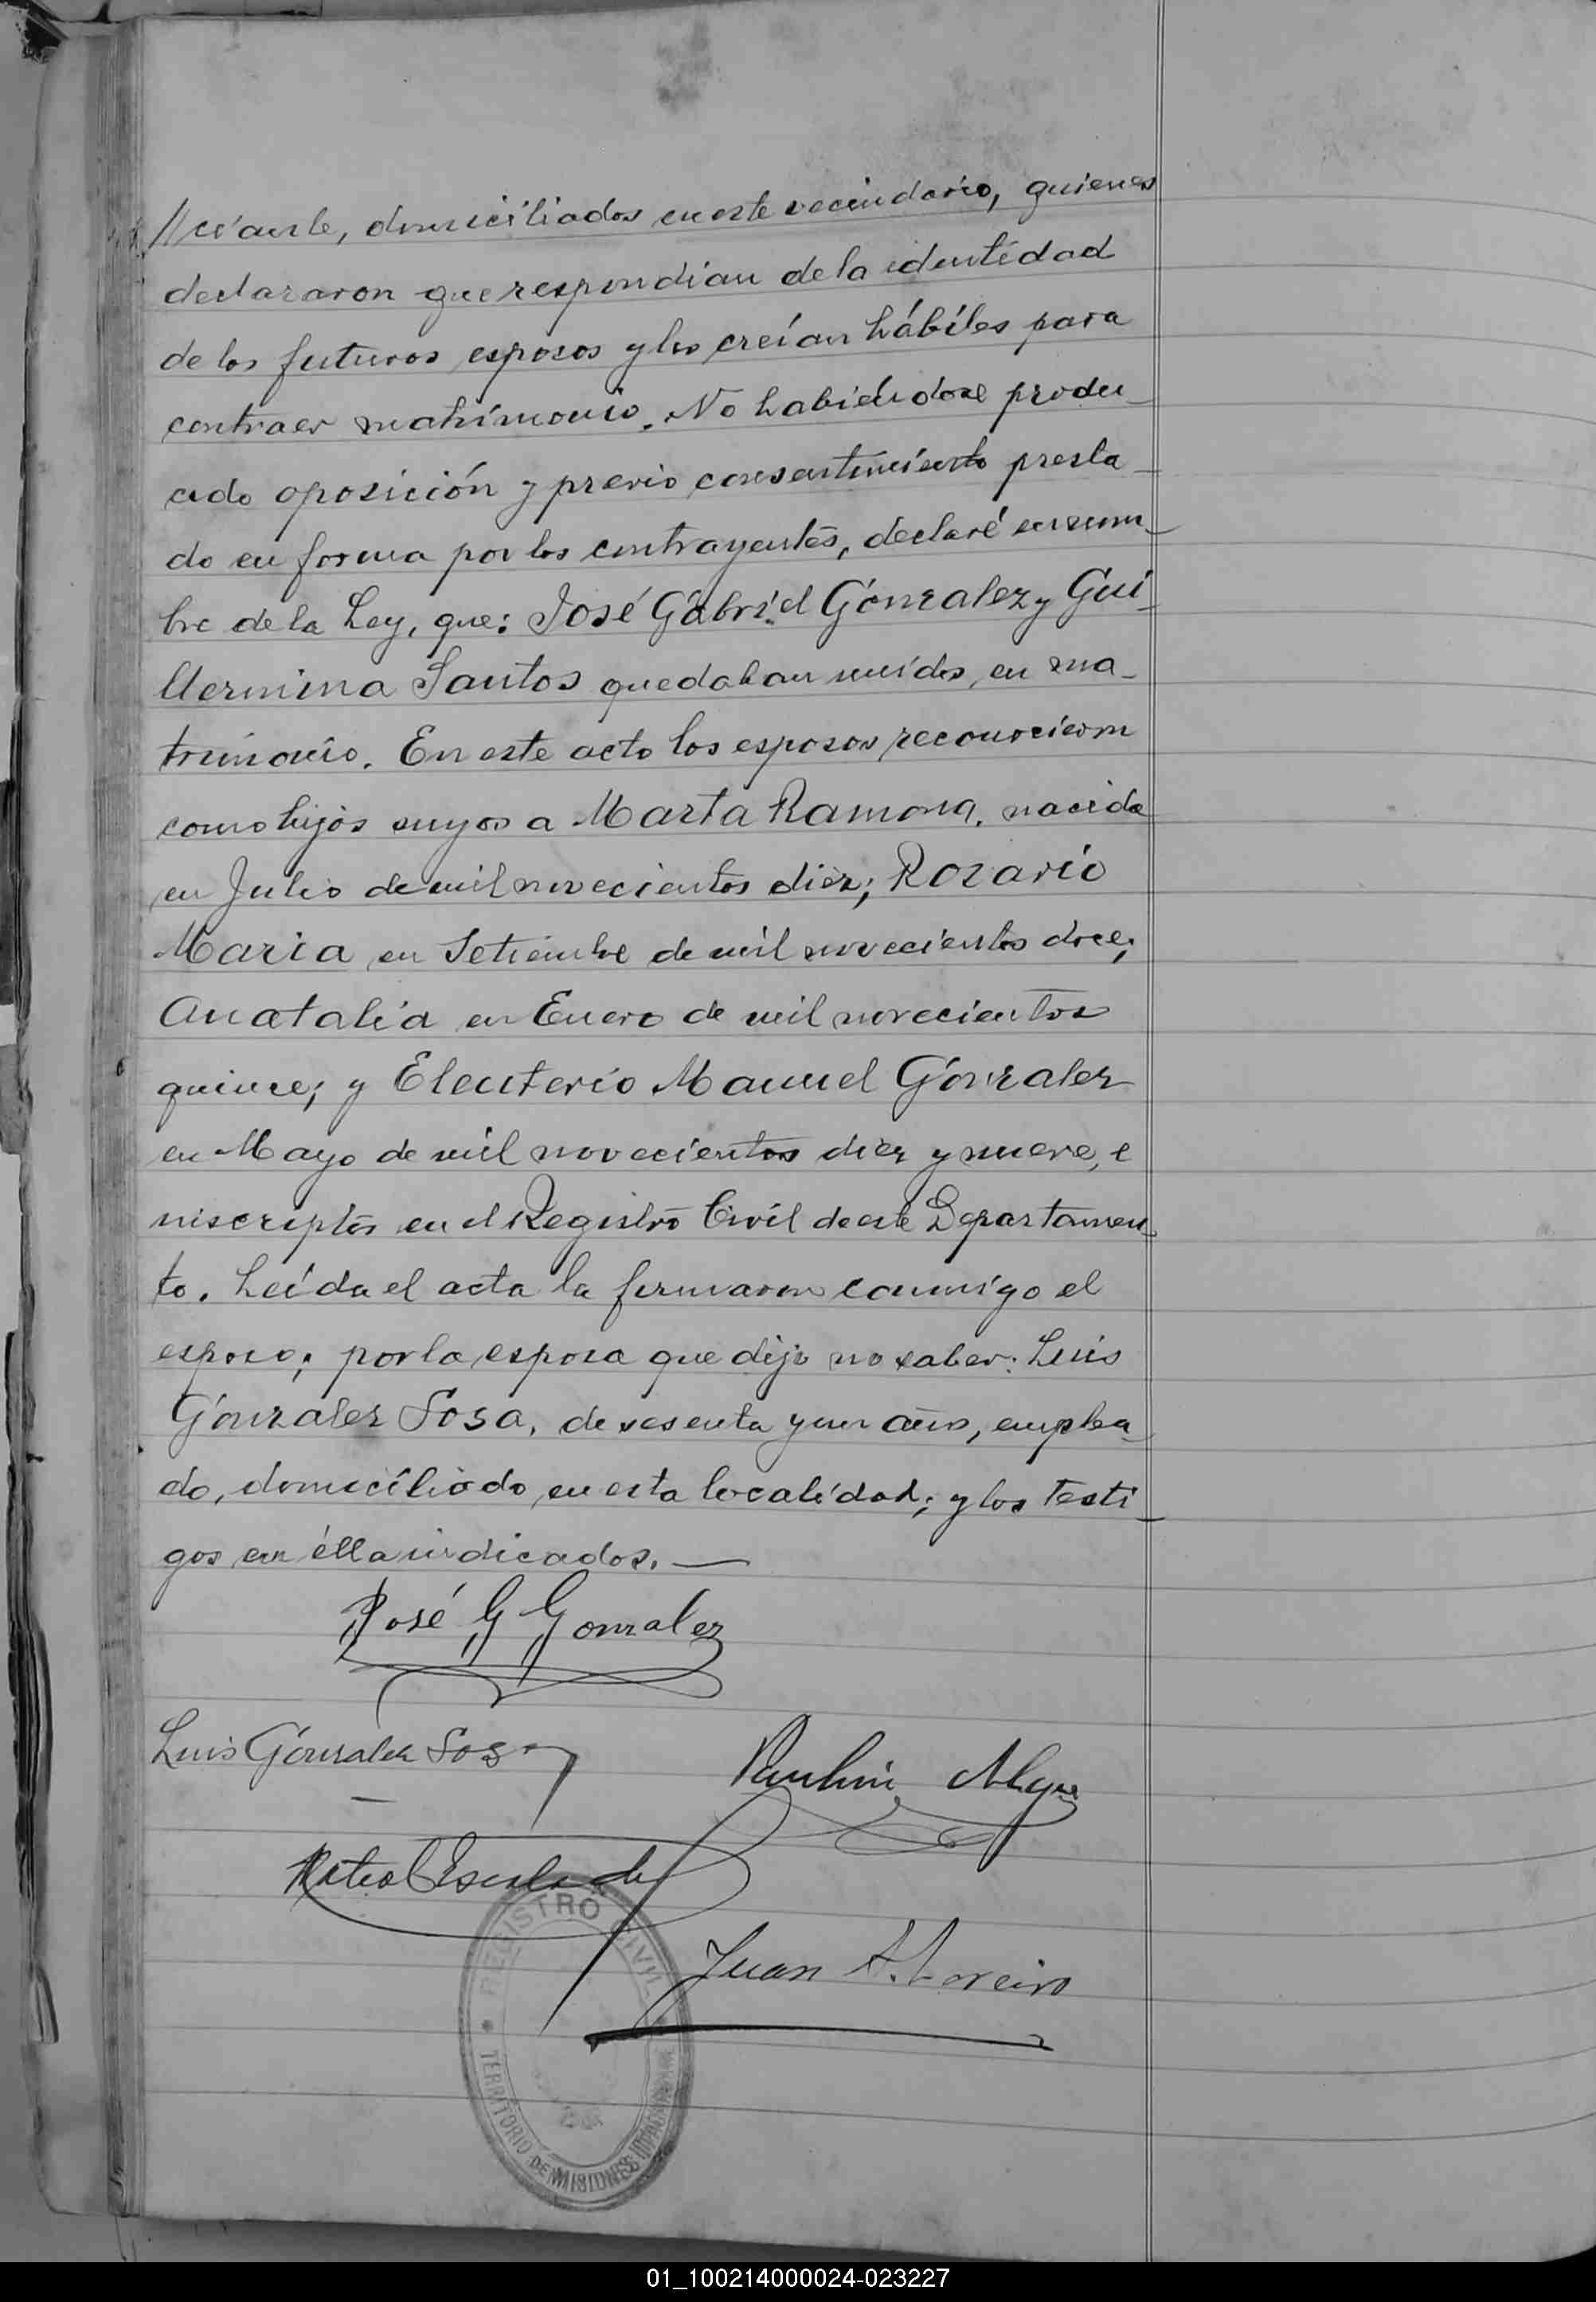 //ciante, domiciliados en este vecindario, quienes
declararon que respondian de la identidad
de los futuros esposos y los creían hábiles para
contraer matrimonio. No habiéndose produ-
cido oposición y previo consentimiento presta-
do en forma por los contrayentes, declaré en nom-
bre de la Ley, que: José Gabriel Gonzalez y Gui-
llermina Santos quedaban unidos en ma-
trimonio. En este acto los esposos reconocieron
como hijos suyos a Marta Ramona, nacida
en Julio de mil novecientos diez; Rozario
Maria en Setiembre de mil novecientos doce;
Anatalia en Enero de mil novecientos
quince; y Eleuterio Manuel Gonzalez
en Mayo de mil novecientos diez y nueve, e
inscriptos en el Registro Civil de este Departamen-
to. Leída el acta la firmaron conmigo el
esposo; por la esposa que dijo no saber: Luis
Gonzalez Sosa, de sesenta y un años, emplea-
do, domiciliado en esta localidad; y los testi-
gos en élla indicados. —
José G Gonzalez
Luis Gonzalez Sosa
Paulino
Mateo Escalada
Juan
REGISTRO CIVIL
TERRITORIO DE MISIONES
01_100214000024-023227